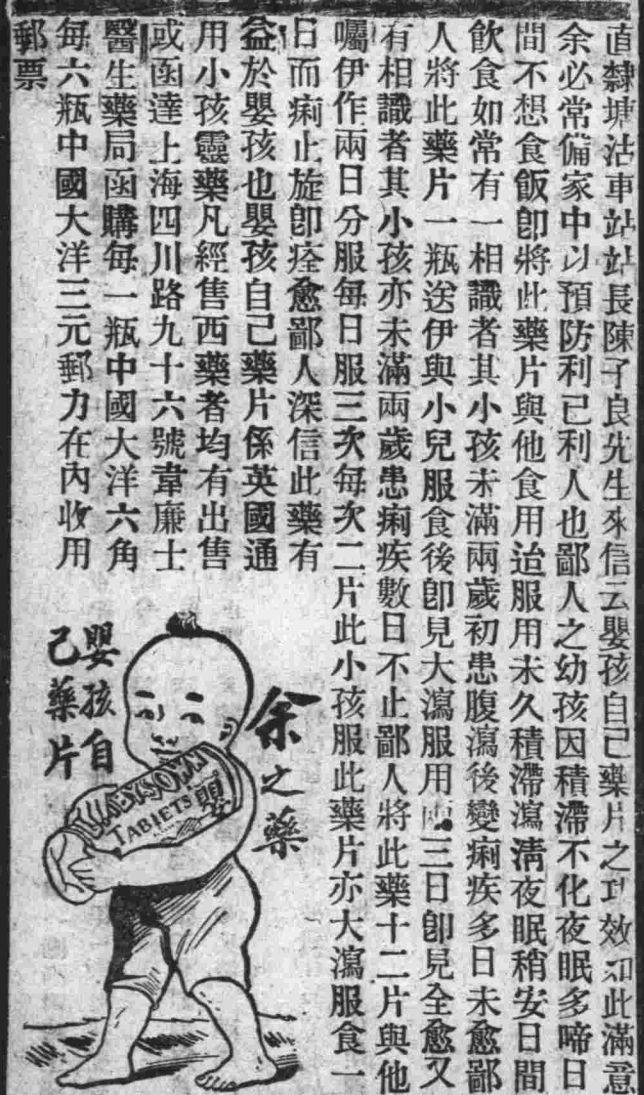 直隸塘沽車站站長陳子良先生來信云嬰孩自己藥片之功效如此滿意
余必常備家中以預防利己利人也鄙人之幼孩因積滯不化夜眠多啼日
間不想食飯卽將此藥片與他食用治服用未久積滯瀉淸夜眠稍安日間
飲食如常有一相識者其小孩未滿兩歲初患腹瀉後變痢疾多日未愈鄙
人將此藥片一瓶送伊與小兒服食後卽見大瀉服用三日卽見全愈又
有相識者其小孩亦未滿兩歲患痢疾數日不止鄙人將此藥十二片與他
囑伊作兩日分服每日服三次每次二片此小孩服此藥片亦大瀉服食一
日而痢止旋卽痊愈鄙人深信此藥有
益於嬰孩也嬰孩自己藥片係英國通
用小孩靈藥凡經售西藥者均有出售
或函達上海四川路九十六號韋廉士
醫生藥局函購每一瓶中國大洋六角
每六瓶中國大洋三元郵力在內收用
郵票
余之藥
嬰孩自
己藥片
TABLETS
嬰